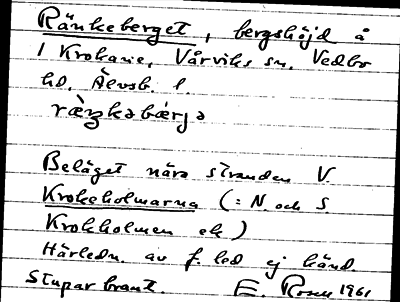 Ränkeberget, bergshöjd å
1 Krokane, Vårviks sn, Vedbo
hd, Älvsb. l.
ræ̀ŋkabæ̀rja
Beläget nära stranden V.
Krokeholmarna (: N. och S.
Krokholmen ek)
Härledn. av f. led ej känd.
Stupar brant. E. Rosell 1961